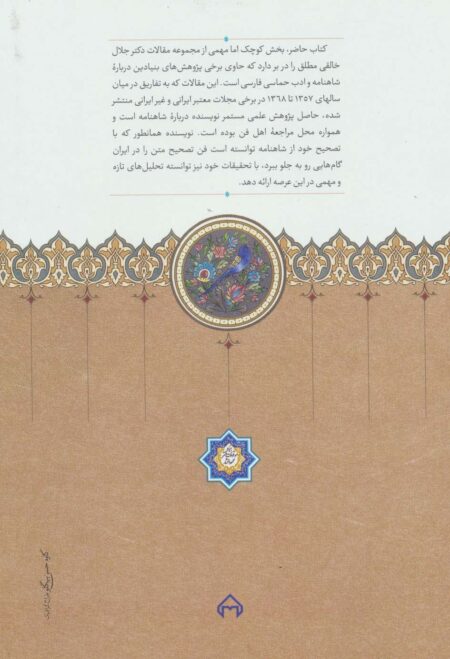 کتاب حاضر، بخش کوچک اما مهمی از مجموعه مقالات دکتر جلال
خالقی مطلق را در بر دارد که حاوی برخی پژوهش‌های بنیادین دربارهٔ
شاهنامه و ادب حماسی فارسی است. این مقالات که به تفاریق در میان
سالهای ۱۳۵۷ تا ۱۳۶۸ در برخی مجلات معتبر ایرانی و غیر ایرانی منتشر
شده، حاصل پژوهش علمی مستمر نویسنده دربارهٔ شاهنامه است و
همواره محل مراجعهٔ اهل فن بوده است. نویسنده همانطور که با
تصحیح خود از شاهنامه توانسته است فن تصحیح متن را در ایران
گام‌هایی رو به جلو ببرد، با تحقیقات خود نیز توانسته تحلیل‌های تازه
و مهمی در این عرصه ارائه دهد.